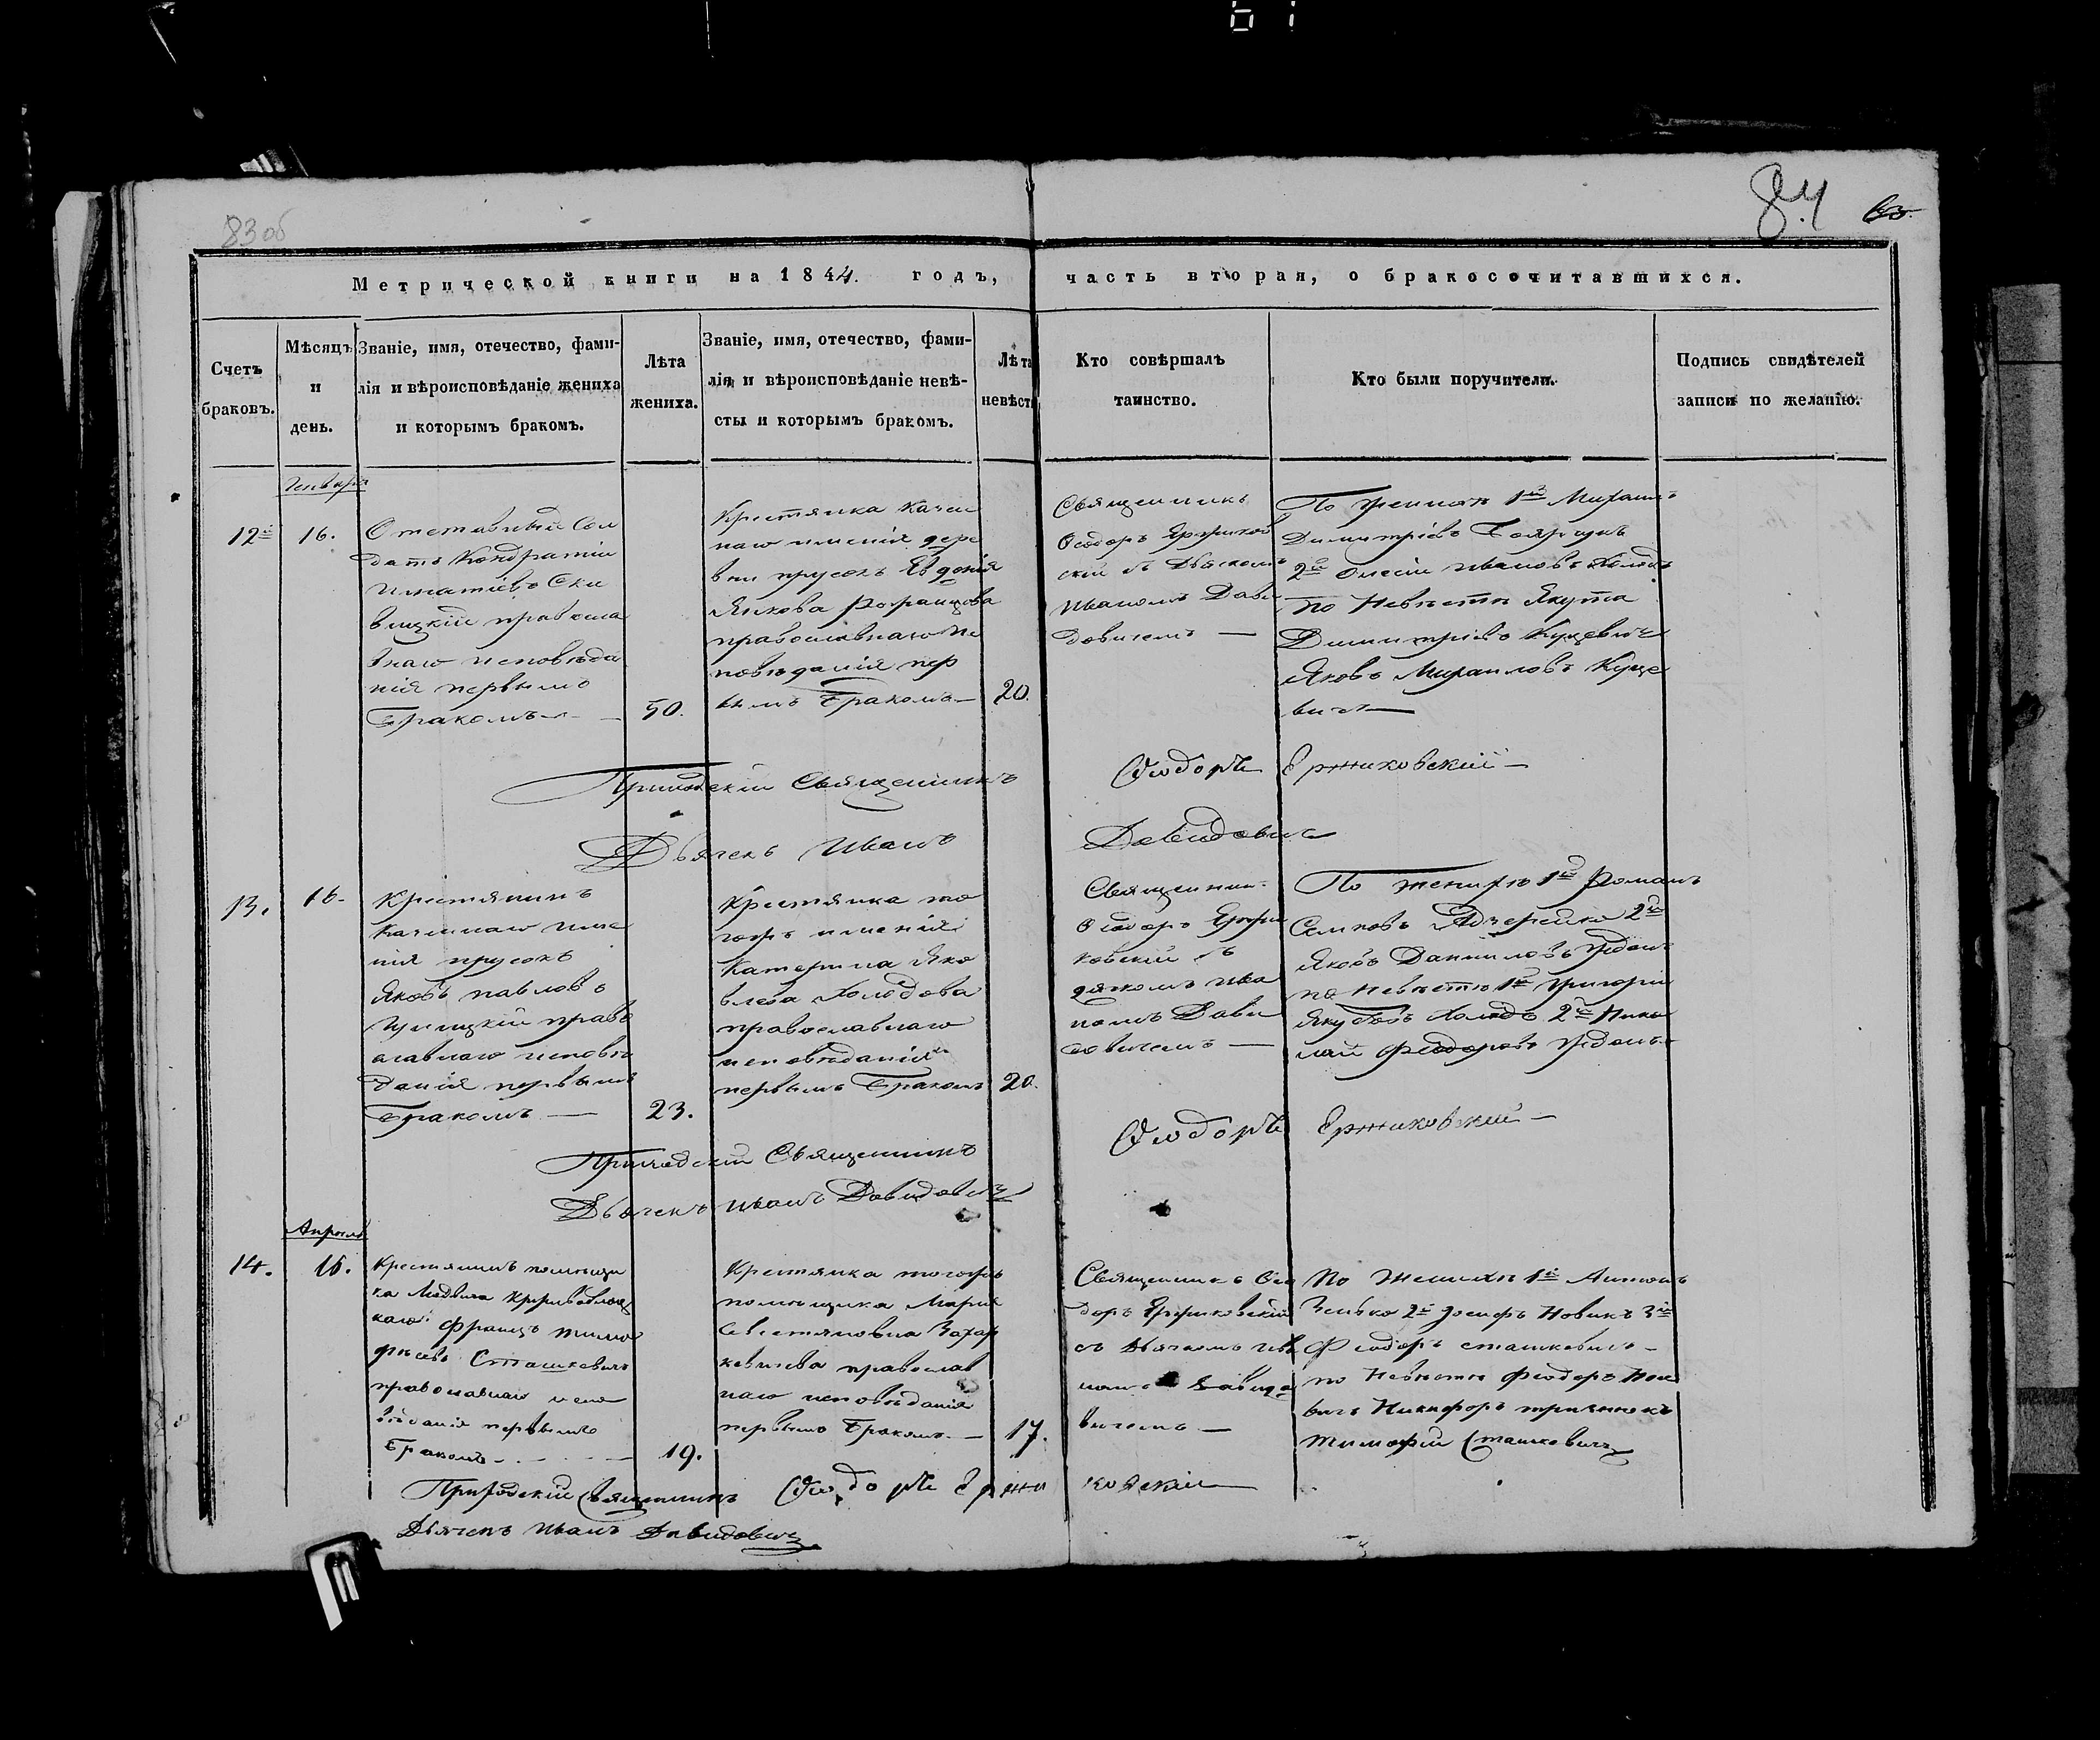 83 об
84
Метрической книги на 1844. годъ, часть вторая, о бракосочитавшихся.
Счетъ браковъ.
Мѣсяцъ и день.
Званіе, имя, отечество, фами-
лія и вѣроисповѣданіе жениха
и которымъ бракомъ.
Лѣта жениха.
Званіе, имя, отечество, фами-
лія и вѣроисповѣданіе невѣ-
сты и которымъ бракомъ.
Лѣта невѣсты
Кто совѣршалъ
таинство.
Кто были поручители.
Подпись свидѣтелей
записи по желанію.
Генваря
12й
16.
Отставный Сол
датъ Кондратій
Игнатіевъ
православ
наго исповѣда
нія первымъ
бракомъ
50.
Крестянка Казен
наго имѣнія дере
вни прусокъ Евдокія
Янкова
православнаго ис
повѣданія пер
вымъ бракомъ
20.
Священникъ
Ѳеодоръ Ержиков
скій съ Дьячкомъ
Иваномъ Дави
довичемъ
По женихѣ 1й Михаилъ
Димитріевъ
2й Иванов Холодъ
по Невѣстѣ Якута
Димитріевъ Куцевичъ
Яковъ Михаиловъ Куце
вичъ
Приходскій Священникъ Ѳеодоръ Ержиковскій
Дьячекъ Иванъ Давидовичъ
13.
16.
Крестянинъ
Казеннаго име
нія прусокъ
Яковъ павловъ
право
славнаго исповѣ
данія первымъ
бракомъ
23.
Крестянка то
гожъ имѣнія
Катерина Яко
влева Холодова
православнаго
исповѣданія
первымъ бракомъ
20.
Священник
Ѳеодоръ Ержи
ковскій съ
дячкомъ Ива
номъ Дави
довичемъ
По женихѣ 1й Романъ
2й
Яковъ Данииловъ Ждан
по Невѣстѣ 1й Григорій
Якубовъ Холодъ 2й Нико
лай Феодоровъ Жданъ
Приходскій Священникъ Ѳеодоръ Ержиковскій
Дьячекъ Иванъ Давидовичъ
Апрѣль
14.
16.
Крестянинъ помѣщи
ка Людвига
каго Францъ Тимо
фѣевъ Сташкевичъ
православнаго испо
вѣданія первымъ
бракомъ
19.
Крестянка тогожъ
помѣщика Марія
Севестяновна Захар
кевичева православ
наго исповѣданія
первымъ бракомъ
17.
Священникъ Ѳео
доръ Ержиковскій
съ Дьячкомъ Ива
номъ Давидо
вичемъ
По Женихѣ 1й Антонъ
Зенько 2й Іосифъ Новикъ 3й
Феодоръ сташкевичъ
по Невѣстѣ Феодоръ
Никифоръ
Тимофей Сташкевичъ
Приходскій Священникъ Ѳеодоръ Ержиковскій
Дьячекъ Иванъ Давидовичъ